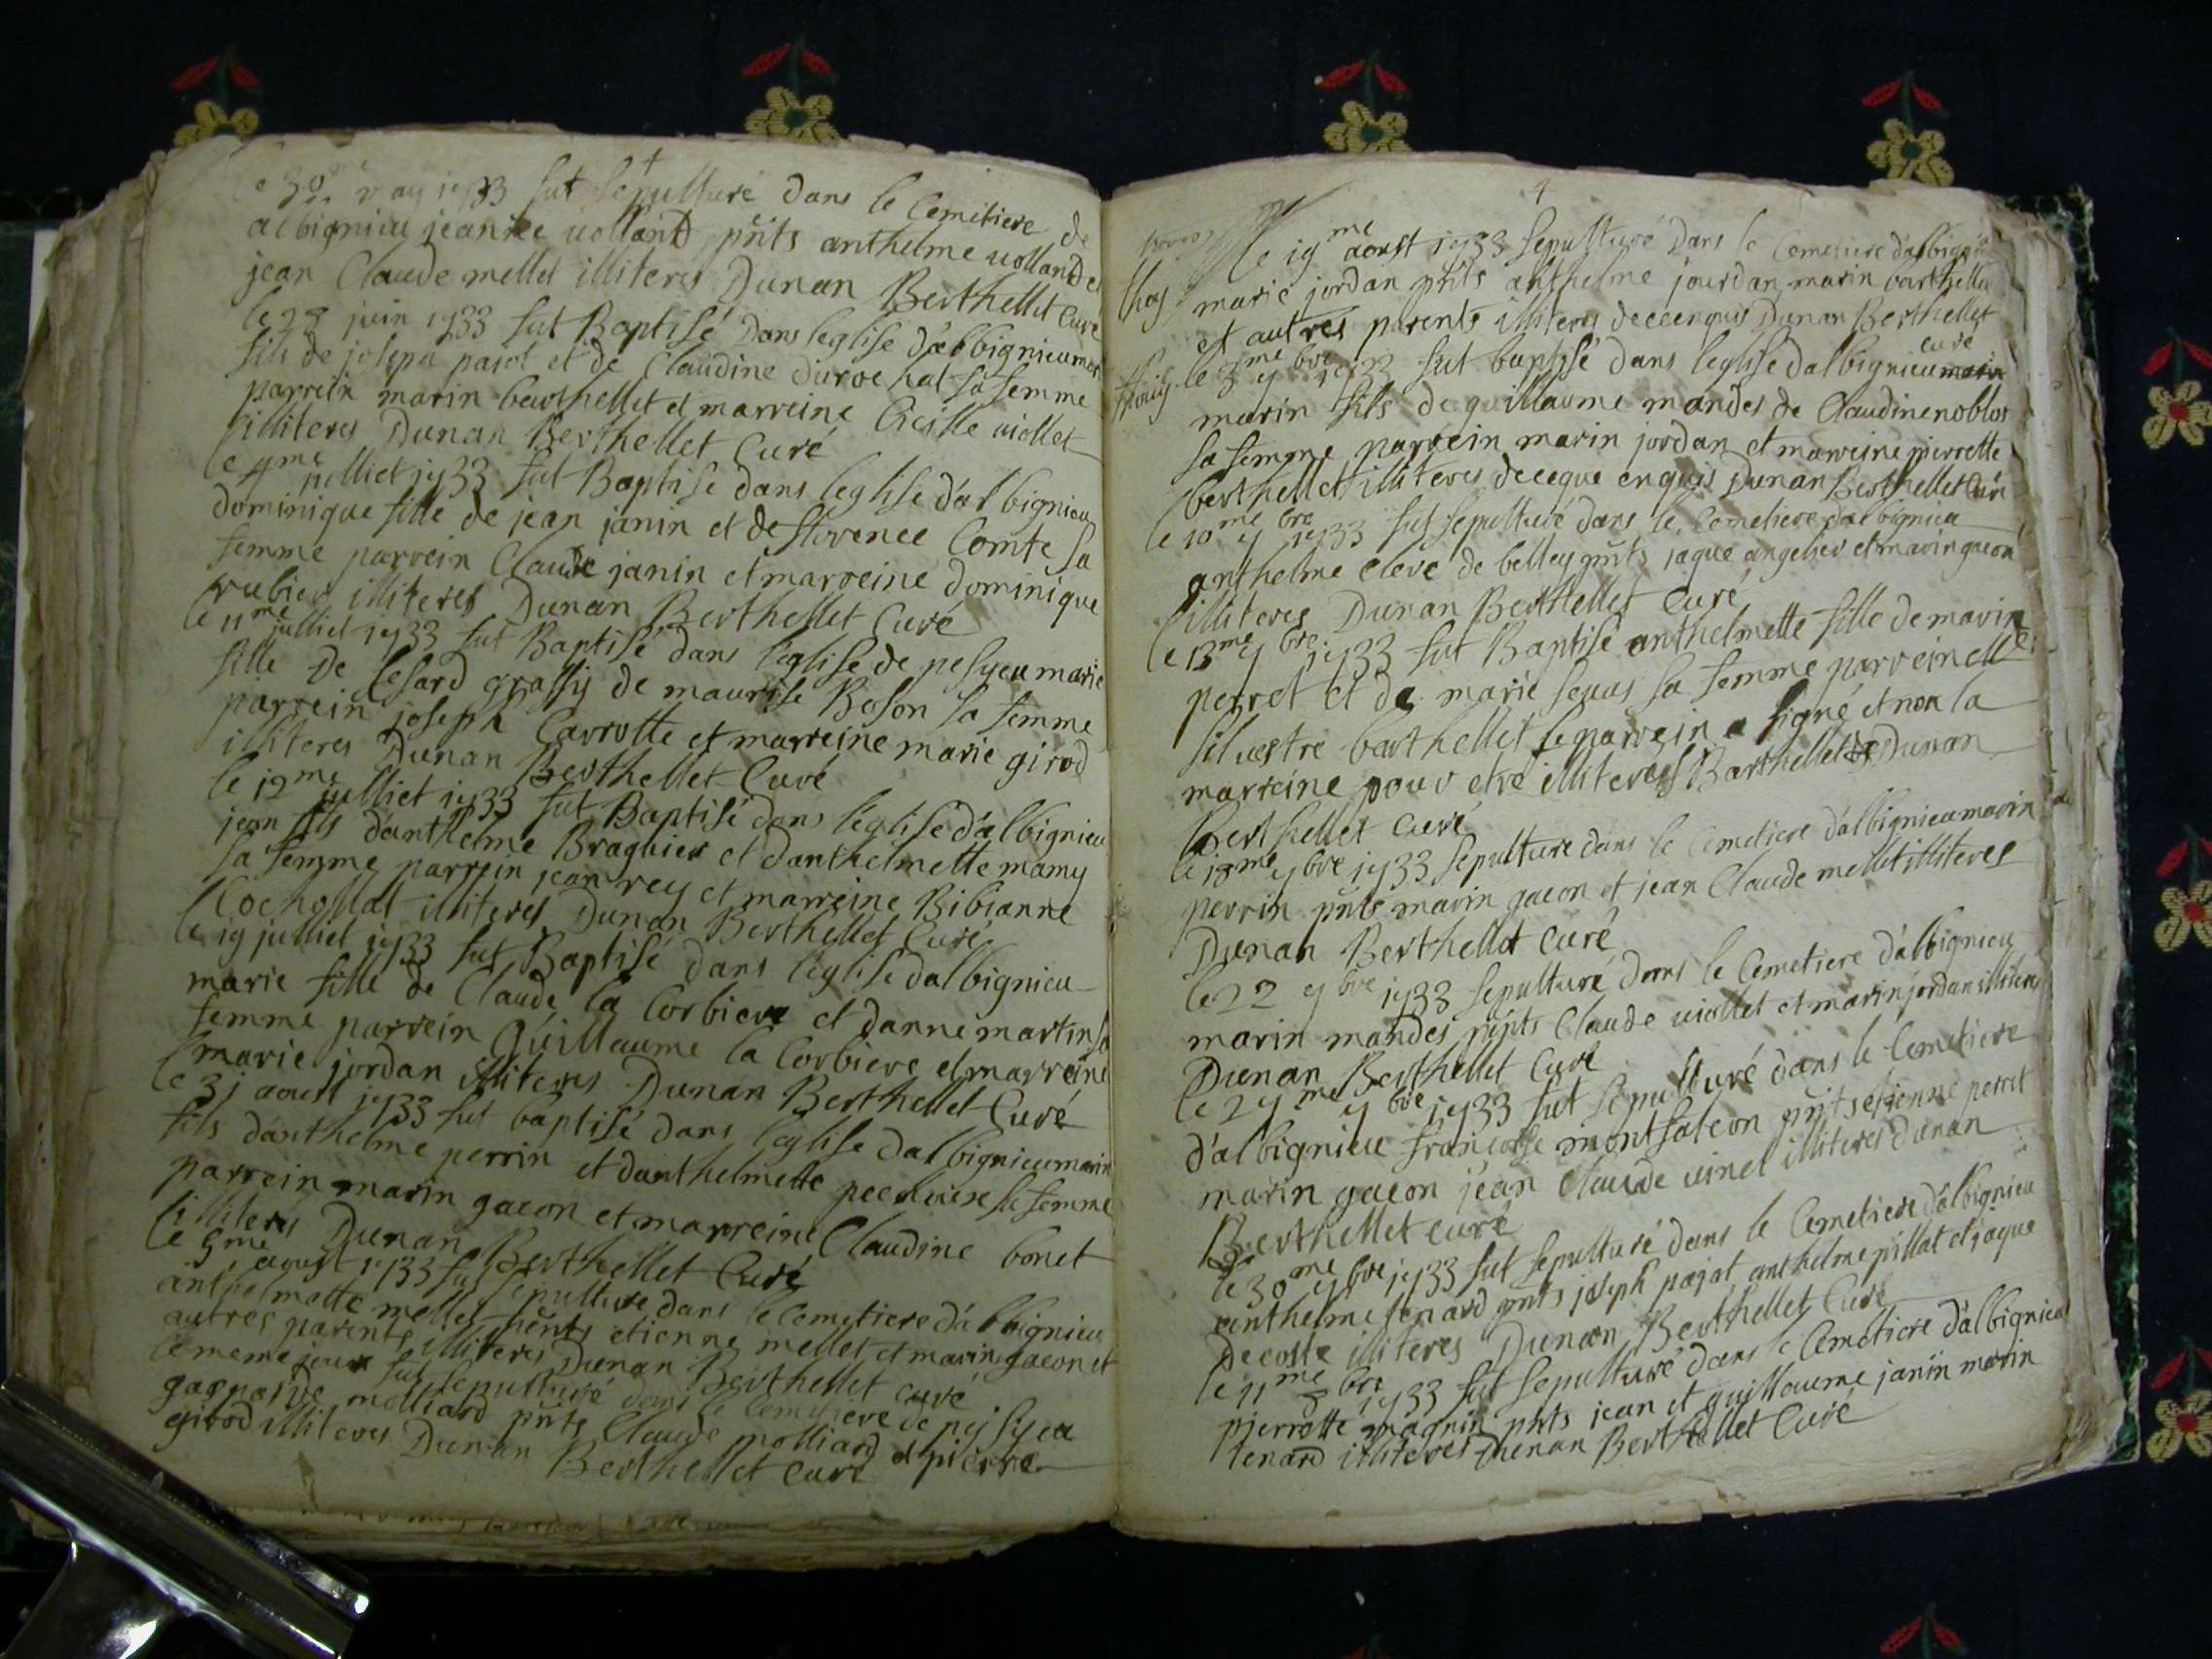 may 1733 fut sepulturé dans le Cemetiere de
albignieu jeanne volland pnts anthelme vollandet
jean Claude mellet illiteres Dunan Berthellet Curé
le 28 juin 1733 fut Baptisé Dans leglise d'albignieu
fils de joseph pajot et de Claudine durochat sa femme
parrein marin berthellet et marreine Cicille viollet
illiteres Dunan Berthellet Curé
le 4me julliet 1733 fut Baptisé dans leglise d'albignieu
dominique fille de jean janin et de florence Comte sa
femme parrein Claude janin et marreine dominique
rubier illiteres Dunan Berthellet Curé
le 11me julliet 1733 fut Baptisé dans leglise de pesyeu marie
fille De Cesard grassy de maurise Boson sa femme
parrein joseph Carrotte et marreine marie girod
illiteres Dunan Berthellet Curé
le 12me julliet 1733 fut Baptisé dans leglise d'albignieu
jean fils danthelme Braghier et danthelmette mamy
sa femme parrein jean rey et marreine Bibianne
Cochonat illiteres Dunan Berthellet Curé
le 19 julliet 1733 fut Baptisé dans leglise dalbignieu
marie fille de Claude la Corbiere et danne martin sa
femme parrein Guillaume la Corbiere et marreine
marie jordan illiteres Dunan Berthellet Curé
le 31 aoust 1733 fut baptisé dans leglise dalbignieu marin
fils danthelme perrin et danthelmette sa femme
parrein marin gacon et marreine Claudine bonet
illiteres Dunan Berthellet Curé
le 5me aoust 1733 fut sepulture dans le Cemetiere d'albignieu
anthelmette mellet pnts etienne mellet et marin gacon et
autres parents illiteres Dunan Berthellet curé
le meme jour fut sepulturé dans le Cemetiere de peysyeu
gasparde molliard pnts Claude molliard et pierre
girod illiteres Dunan Berthellet Curé
le 19me aoust 1733 sepulturé Dans le Cemetiere d'albignieu
marie jordan pnts anthelme jourdan marin barthellet
et autres parents illiteres deceenquis Dunan Berthellet
curé
le 3me 7bre 1733 fut baptisé dans leglise dalbignieu
marin fils de guillaume mandes de Claudine noblos
sa femme parrein marin jordan et marreine pierrette
berthellet illiteres deceque enquis Dunan Berthellet Curé
le 10me 7bre 1733 fut sepulturé dans le Cemetiere d'albignieu
anthelme eleve de belley pnts jaque angelier et marin gacon
illiteres Dunan Berthellet Curé
le 13me 7bre 1733 fut Baptisé anthelmette fille de marin
perret et de marie sevas sa femme parrein
silvestre barthellet le parrein a signé et non la
marreine pour etre illiteres Barthellet Dunan
Berthellet Curé
le 18me 7bre 1733 sepulture dans le Cemetiere d'albignieu marin
perrin pnts marin gacon et jean Claude mellet illiteres
Dunan Berthellet Curé
le 22 7bre 1733 sepulturé dans le Cemetiere d'albignieu
marin mandes pnts Claude viollet et marin jordan illiteres
Dunan Berthellet Curé
le 27me 7bre 1733 fut sepulturé dans le Cemetiere
d'albignieu francoise montfalcon pnts etienne perret
marin gacon jean Claude vinet illiteres dunan
Berthellet curé
le 30me 7bre 1733 fut sepulturé dans le Cemetiere d'albignieu
anthelme tenard pnts joseph pajat anthelme pillat et jaque
decoste illiteres Dunan Berthellet Curé
le 11me 8bre 1733 fut sepulturé dans le Cemetiere d'albignieu
pierrette magnin pnts jean et guillaume janin marin
tenard illiteres Dunan Berthellet Curé